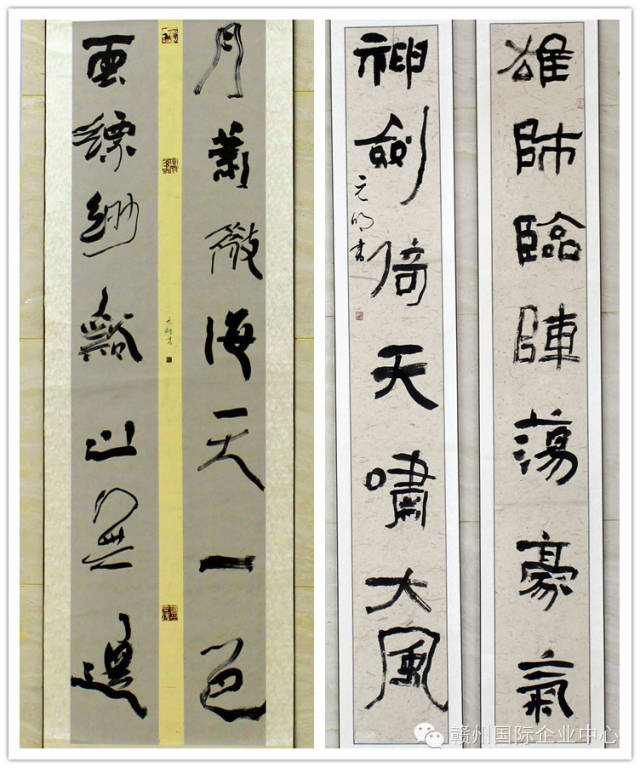 月蕭海天一色
縹緲谿山無邊
元明書
雄師臨陣蕩豪氣
神劍倚天嘯大風
元明書
赣州国际企业中心